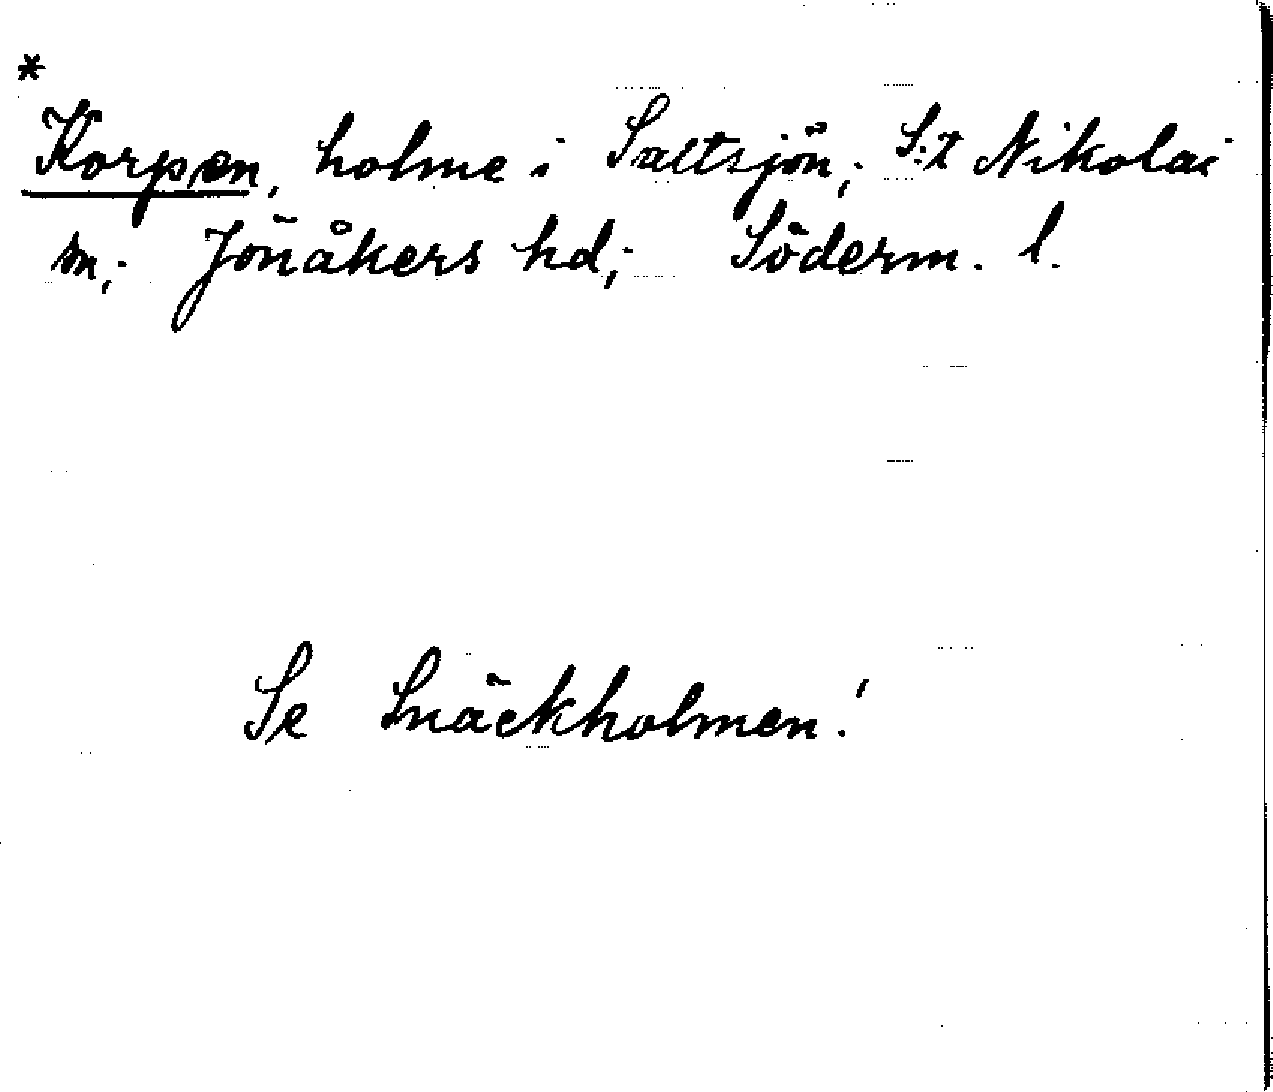 *
Korpen, holme i Saltsjön; S:t Nikolai
sn; Jönåkers hd; Söderm. l.
Se Snäckholmen!